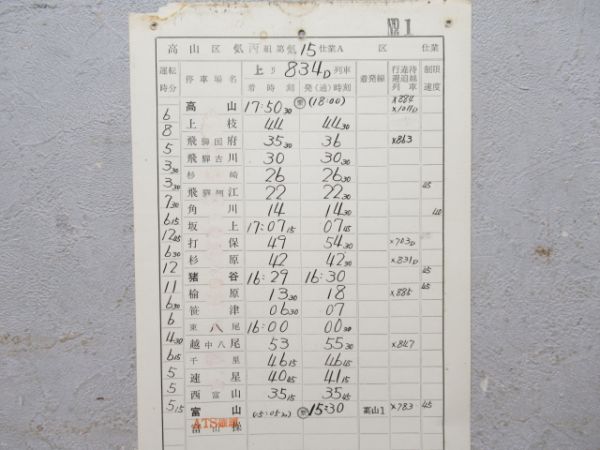 № 1
高山区 気丙組第気15仕業A 区 仕業
運転時分 停車場名 上り 834D 列車 着発線 行違待避追越列車 制限速度
着時刻 発(通)時刻
高山 17:50 30 (18:00) ×884 ×1011D
6
上枝 44 44 30
8
飛騨国府 35 30 36 ×863
5
飛騨古川 30 30 30
3 30
杉崎 26 26 30
3 30
飛騨細江 22 22 30 45
7 30
角川 14 14 30 40
6 15
坂上 17:07 15 07 45
12 45
打保 49 54 30 ×703D
6 30
杉原 42 42 30 ×831D
12
猪谷 16:29 16:30 65
11
楡原 13 30 18 ×885 65
6 30
笹津 06 30 07
6
東八尾 16:00 00 30
4 30
越中八尾 53 55 30 ×847
6 15
千里 46 15 46 45
5
速星 40 45 41 15
5
西富山 35 15 35 45
5 15
富山 (15:05 30) 15:30 高山1 ×783 45
ATS確認